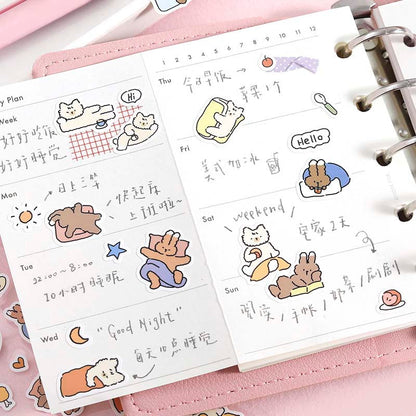 y Plan
Week
Hi
好好吃饭
好好睡觉
Mon
日上三竿
快起床
上班啦~
Tue
22:00~8:00
10小时睡眠
Wed
"Good Night"
每天10点睡觉
1 2 3 4 5 6 7 8 9 10 11 12
Thu
今日早饭
苹果1个
Fri
Hello
美式加冰
Sat
weekend
宅家2天
Sun
阅读/手帐/奶茶/刷剧